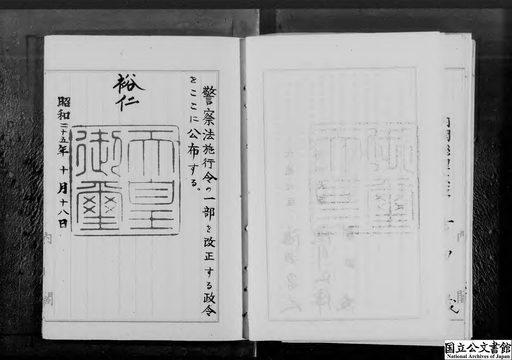 警察法施行令の一部を改正する政令
をここに公布する。
裕仁
天皇
御璽
昭和二十五年十月十八日
内閣
国立公文書館
National Archives of Japan